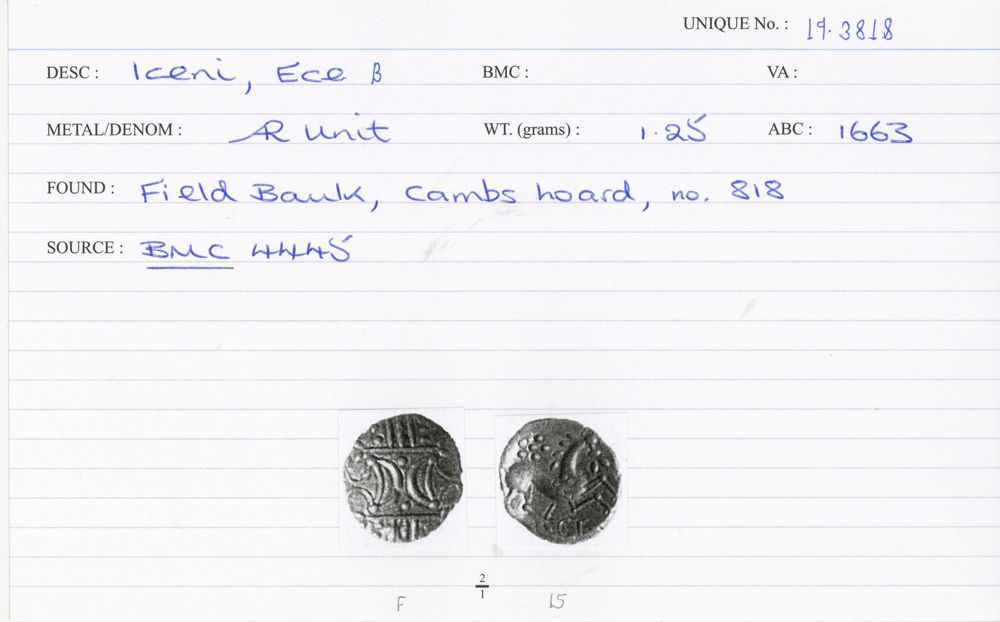 UNIQUE No. : 19.3818
DESC : Iceni, Ece B BMC : VA :
METAL/DENOM : AR unit WT. (grams) : 1.25 ABC : 1663
FOUND : Field Baulk, Cambs hoard, no. 818
SOURCE : BMC 4445
2
1
F 15